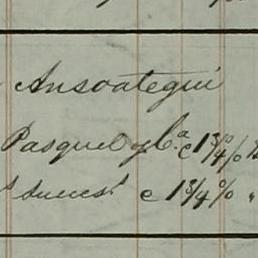 Ansoategui
Pasquel y Ca c 1 3/4 %
c 1 3/4 % "